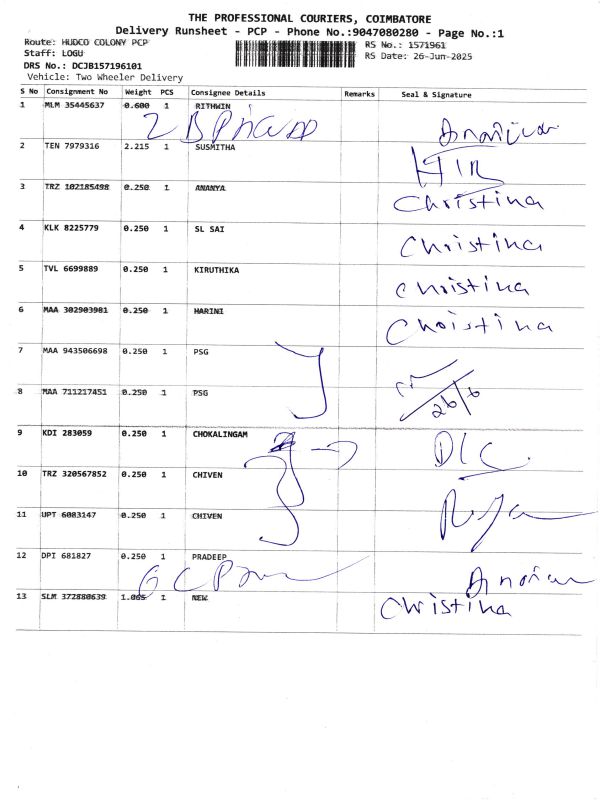 THE PROFESSIONAL COURIERS, COIMBATORE
Delivery Runsheet - PCP - Phone No.:9047080280 - Page No.:1
Route: HUDCO COLONY PCP
RS No.: 1571961
Staff: LOGU
RS Date: 26-Jun-2025
DRS No.: DCJB157196101
Vehicle: Two Wheeler Delivery
S No Consignment No Weight PCS Consignee Details Remarks Seal & Signature
1 MLM 35445637 0.600 1 RITHWIN
2 B
2 TEN 7979316 2.215 1 SUSMITHA
3 TRZ 102185498 0.250 1 ANANYA Christina
4 KLK 8225779 0.250 1 SL SAI Christina
5 TVL 6699889 0.250 1 KIRUTHIKA Christina
6 MAA 302903981 0.250 1 HARINI Christina
7 MAA 943506698 0.250 1 PSG
8 MAA 711217451 0.250 1 PSG 26/6
9 KDI 283059 0.250 1 CHOKALINGAM
10 TRZ 320567852 0.250 1 CHIVEN
11 UPT 6003147 0.250 1 CHIVEN
12 DPI 681827 0.250 1 PRADEEP
13 SLM 372880639 1.065 1 NEW Christina